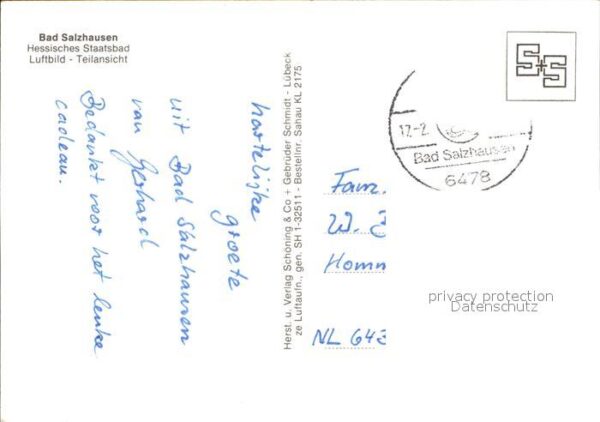 Bad Salzhausen
Hessisches Staatsbad
Luftbild - Teilansicht
hartelijke
groete
uit Bad Salzhausen
van Gerhard
Bedankt voor het leuke
cadeau.
Herst. u. Verlag Schöning & Co + Gebrüder Schmidt - Lübeck
ze Luftaufn., gen. SH 1-32511 - Bestellnr. Sahau KL 2175
S+S
12-2
Bad Salzhausen
6478
Fam.
W.
Homm
NL 643
privacy protection
Datenschutz